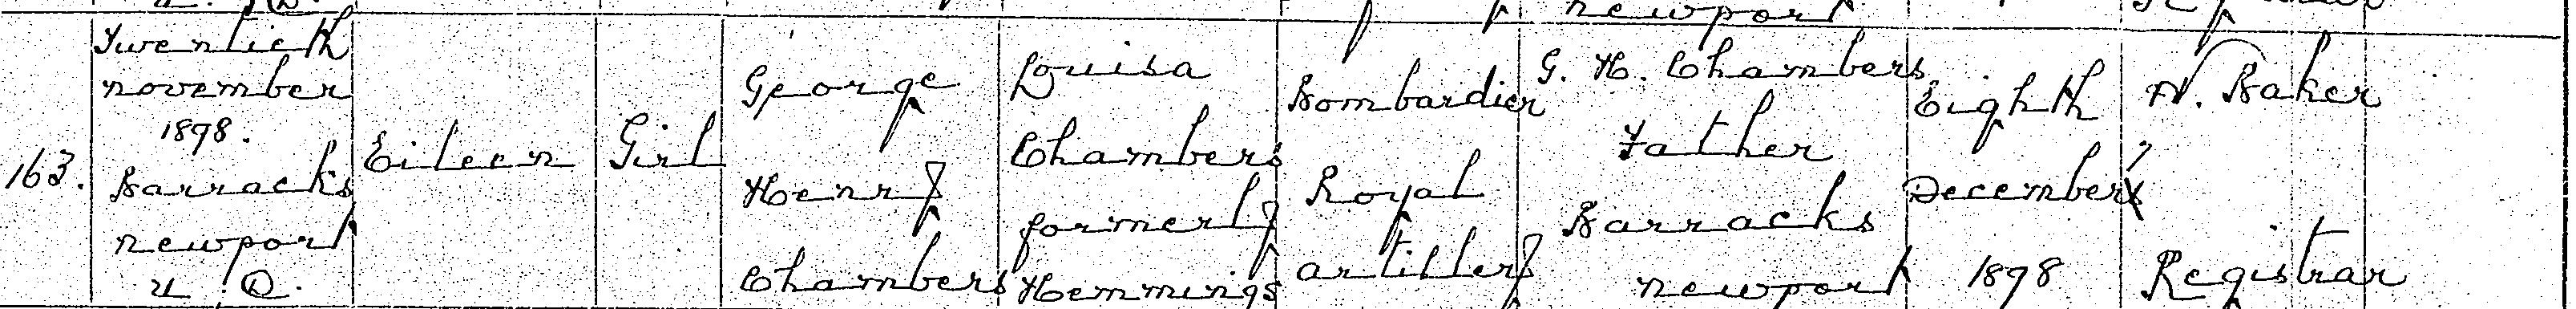 newport
163.
Twentieth
november
1898.
Barracks
newport
U.D.
Eileen
Girl
George
Henry
Chambers
Louisa
Chambers
formerly
Hemmings
Bombardier
Royal
artillery
G. H. Chambers
Father
Barracks
newport
Eighth
December
1898
Baker
Registrar